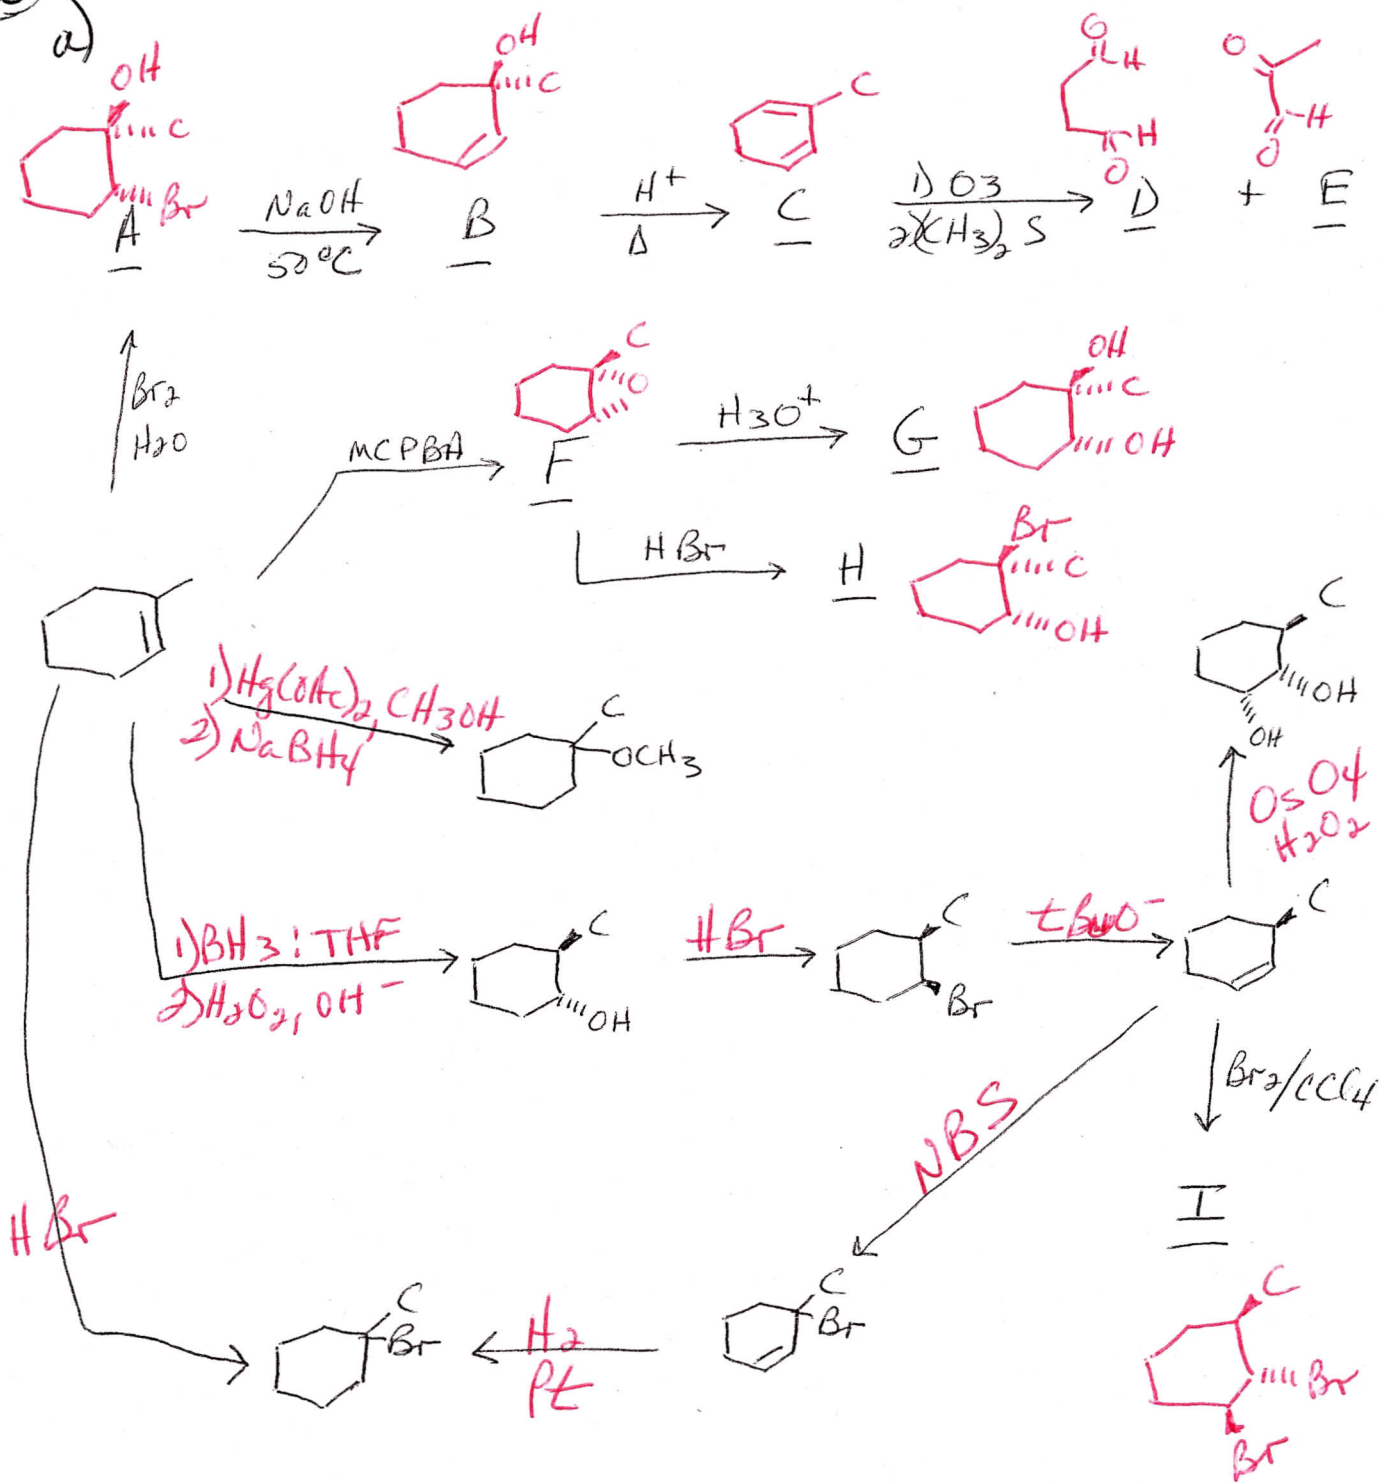 a)
OH
C
Br
A
NaOH
50°C
OH
C
B
H+
Δ
C
C
1) O3
2) (CH3)2 S
O
H
H
O
D
+
O
H
O
E
Br2
H2O
MCPBA
C
O
F
H3O+
G
OH
C
OH
HBr
H
Br
C
OH
1) Hg(OAc)2, CH3OH
2) NaBH4
C
OCH3
C
OH
OH
OsO4
H2O2
1) BH3:THF
2) H2O2, OH-
C
OH
HBr
C
Br
tBuO-
C
Br2/CCl4
NBS
I
HBr
C
Br
H2
Pt
C
Br
C
Br
Br